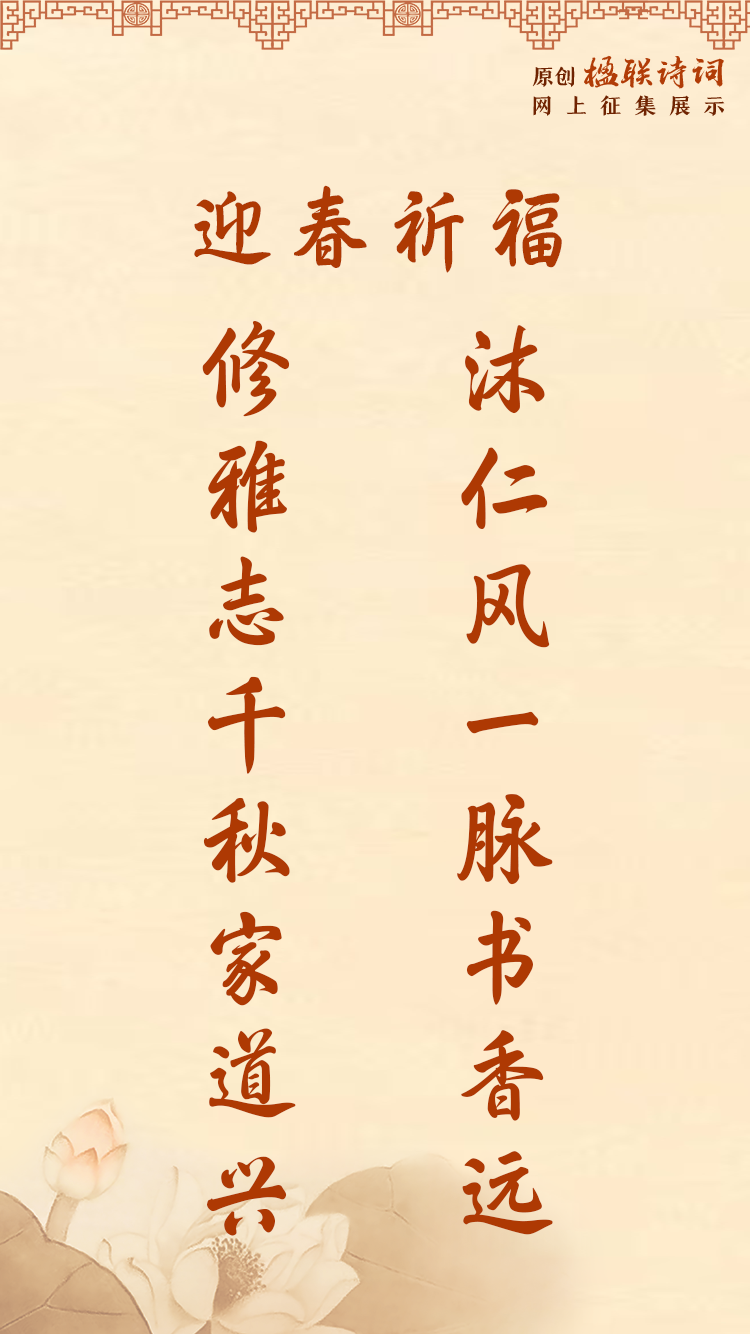 原创 楹联诗词
网上征集展示
迎春祈福
沐仁风一脉书香远
修雅志千秋家道兴